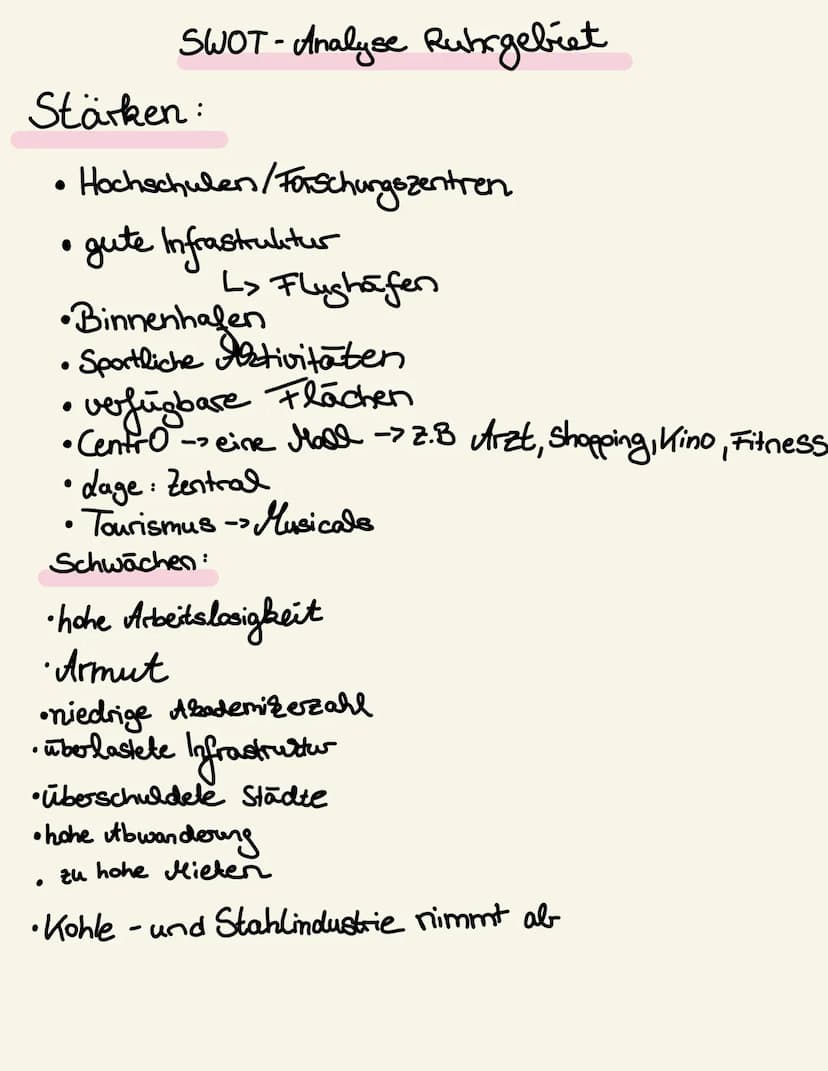 SWOT - Analyse Ruhrgebiet
Stärken:
• Hochschulen/Forschungszentren
• gute Infrastruktur
↳ Flughäfen
• Binnenhafen
• Sportliche Aktivitäten
• verfügbare Flächen
• CentrO -> eine Mall -> z.B Arzt, Shopping, Kino, Fitness
• Lage: Zentral
• Tourismus -> Musicals
Schwächen:
• hohe Arbeitslosigkeit
• Armut
• niedrige Akademikerzahl
• überlastete Infrastruktur
• überschuldete Städte
• hohe Abwanderung
• zu hohe Mieten
• Kohle - und Stahlindustrie nimmt ab